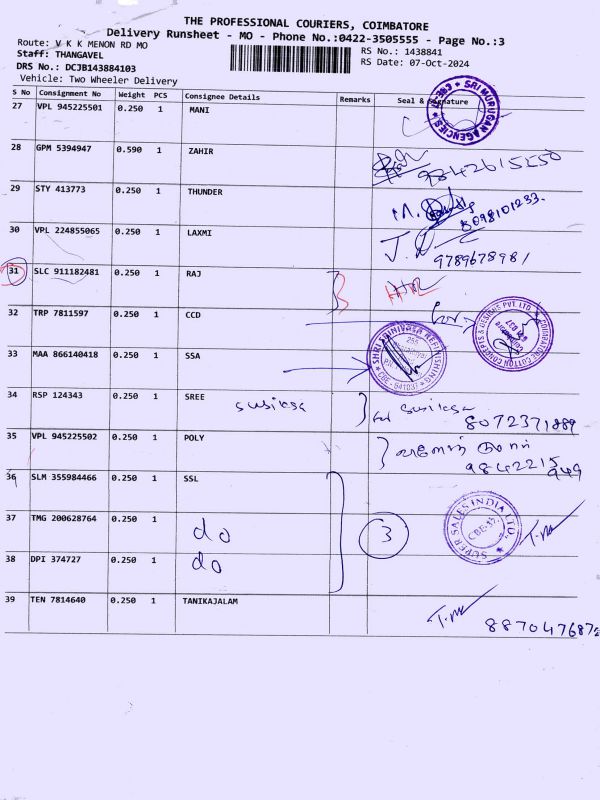 THE PROFESSIONAL COURIERS, COIMBATORE
Delivery Runsheet - MO - Phone No.:0422-3505555 - Page No.:3
Route: V K K MENON RD MO
RS No.: 1438841
Staff: THANGAVEL
RS Date: 07-Oct-2024
DRS No.: DCJB143884103
Vehicle: Two Wheeler Delivery
S No Consignment No Weight PCS Consignee Details Remarks Seal & Signature
27 VPL 945225501 0.250 1 MANI
SRI MURUGAN AGENCIES
28 GPM 5394947 0.590 1 ZAHIR
9842615550
29 STY 413773 0.250 1 THUNDER
8098101233.
30 VPL 224855065 0.250 1 LAXMI
9789678981
31 SLC 911182481 0.250 1 RAJ
32 TRP 7811597 0.250 1 CCD
COIMBATORE COTTON CONCEPTS & DESIGNS PVT. LTD.
33 MAA 866140418 0.250 1 SSA
34 RSP 124343 0.250 1 SREE susiksa susiksa
8072371889
35 VPL 945225502 0.250 1 POLY
9842215949
36 SLM 355984466 0.250 1 SSL
SUPER SALES INDIA LTD.
CBE-37.
37 TMG 200628764 0.250 1 do 3
38 DPI 374727 0.250 1 do
39 TEN 7814640 0.250 1 TANIKAJALAM
887047687